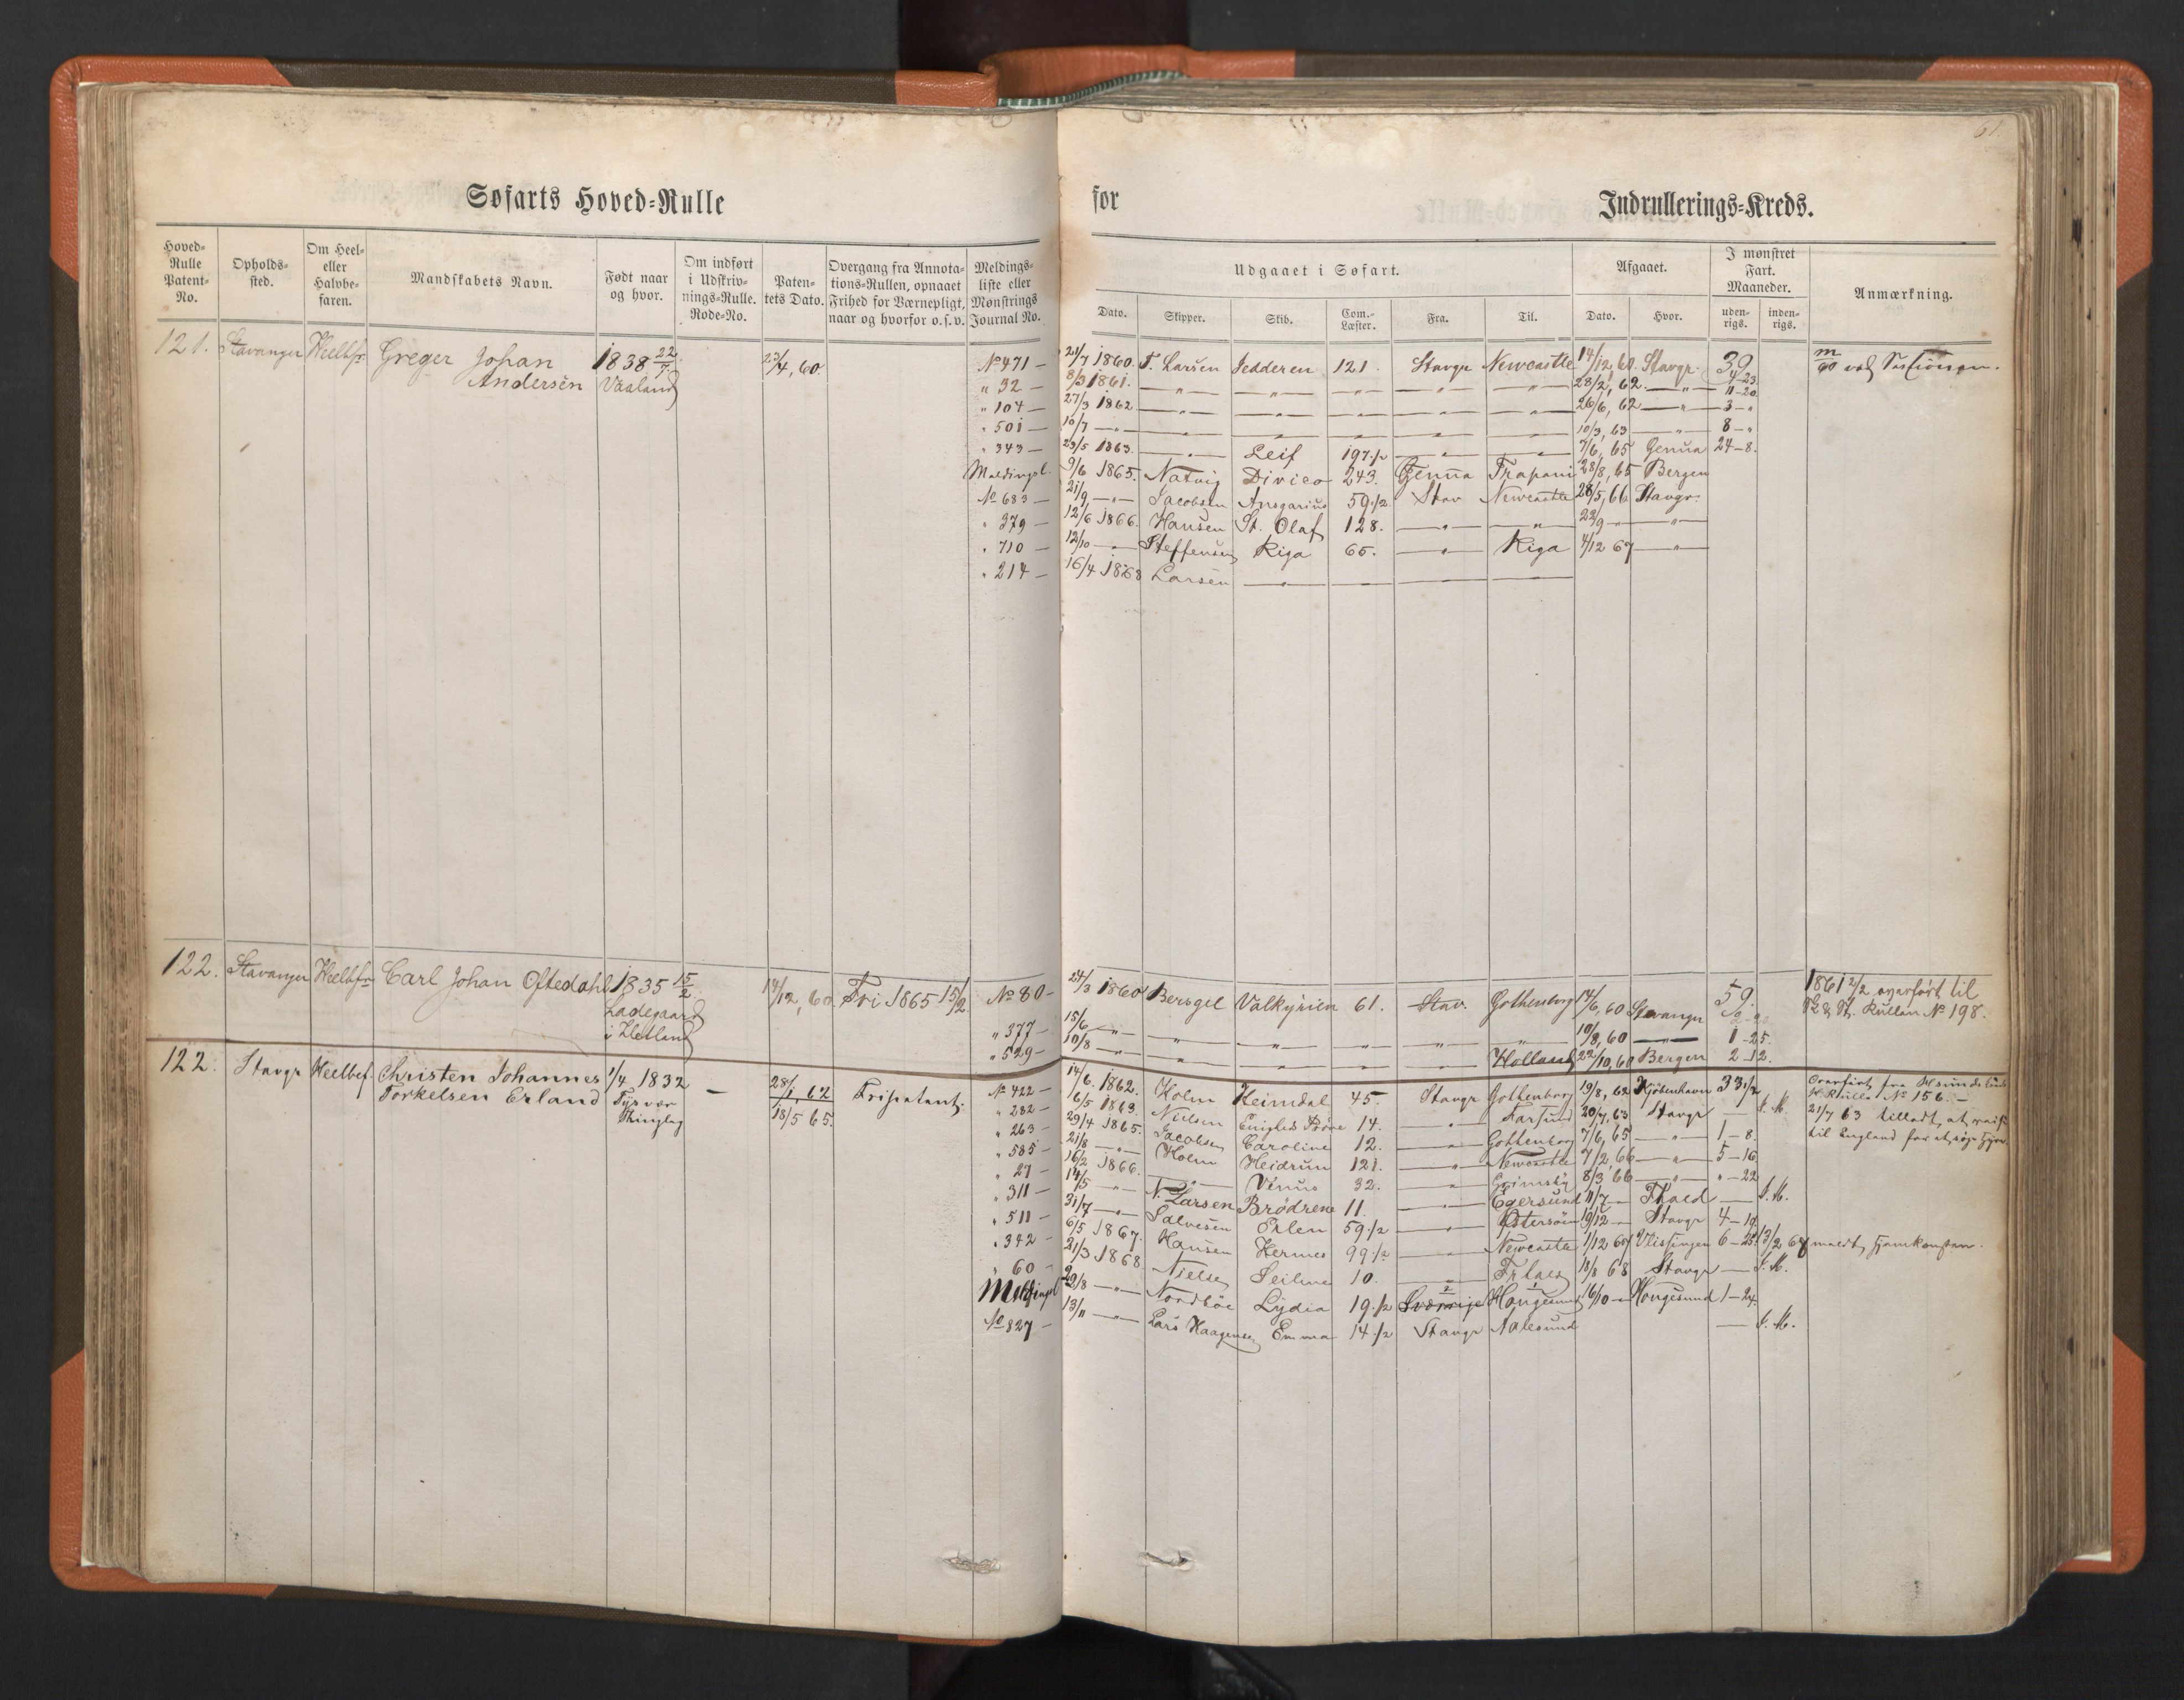 61.
Søfarts Hoved-Rulle for Indrullerings-Kreds.
Hoved-Rulle Patent-No. Opholds-sted. Om Heel- eller Halvbe-faren. Mandskabets Navn. Født naar og hvor. Om indført i Udskriv-nings-Rulle. Rode-No. Paten-tets Dato. Overgang fra Annota-tions-Rullen, opnaaet Frihed for Værnepligt, naar og hvorfor o.s.v. Meldings-liste eller Mønstrings Journal No.
Udgaaet i Søfart. Afgaaet. I mønstret Fart. Maaneder. Anmærkning.
Dato. Skipper. Skib. Com.-Læster. Fra. Til. Dato. Hvor. uden-rigs. inden-rigs.
121. Stavanger Heelbfr Greger Johan 1838 22/7 23/4, 60. No 471 — 21/7 1860. T. Larsen Jedderen 121. Stavgr Newcastle 14/12, 60. Stavgr. 39
Andersen Vaaland " 32 — 8/3 1861. — " — — " — — " — — " — — " — 28/2, 62. — " — 11-20
" 104 — 27/3 1862 — " — — " — — " — — " — — " — 26/6, 62 — " — 3 - "
" 501 — 10/7 — " — — " — — " — — " — — " — — " — 10/3, 63 — " — 8 - "
" 343 — 23/5 1863. — " — Leif 197 1/2 — " — — " — 7/6, 65 Genua 24-8.
Meldingsl. 9/6 1865. Natvig Divico 243. Genua Trapani 28/8, 65 Bergen
No 683 — 21/9 — " — Jacobsen Ansgarius 59 1/2 Stav Newcastle 28/5, 66 Stavgr.
" 379 — 12/6 1866. Hansen St. Olaf 128. — " — — " — 22/9 — " —
" 710 — 12/10 — " — Steffensen Riga 65. — " — Riga 4/12 67 — " —
" 214 — 16/4 1868 Larsen — " — — — — —
122. Stavanger Heelbfr Carl Johan Oftedahl 1835 15/2 14/12, 60. Fri 1865 15/2. No 80 — 24/3 1860 Bersgel Valkyrien 61. Stav. Gothenborg 14/6, 60 Stavanger 59. 1861 2/2 overført til
Ladegaard No 198.
i Hetland " 377 — 15/6 — " — — " — — " — — " — — " — — " — 10/8, 60 — " — 1-25.
" 529 — 10/8 — " — — " — — " — — " — — " — Holland 22/10, 60 Bergen 2-12.
122. Stavgr Heelbef. Christen Johannes 1/4 1832 — 28/1, 62 Fripatent. No 422 — 14/6. 1862. Holm Heimdal 45. Stavgr Gottenborg 19/8, 62 Kjøbenhavn 33 1/2 Overført fra
Torkelsen Erland Tysvær 18/5 65. " 282 — 6/5 1863. Nielsen 14. — " — Farsund 20/7, 63 Stavgr — I. M. Rulle No 156. —
Thinglag " 263 — 29/4 1865. Jacobsen Caroline 12. — " — Gottenborg 7/6, 65 — " — 1-8. 21/7 63 tilladt at reise
" 585 — 21/8 — " — Holm Heidrun 121. — " — Newcastle 7/2, 66 — " — 5-16 til England for at søge Hyre.
" 27 — 16/2 1866. — " — Venus 32. — " — Grimsby 8/3 66 — " — " - 22
" 311 — 14/5 — " — N. Larsen Brødrene 11. — " — Egersund 11/7 — — I. M.
" 511 — 31/7 — " — Salvesen Erlen 59 1/2 — " — Østersøen 19/12 — Stavgr 4-19.
" 342 — 6/5 1867. Hansen Hermes 99 1/2 — " — Newcastle 1/12 67 Vlissingen 6-25. 13/2 68 meldt hjemkommen.
" 60 — 21/3 1868. Nielsen 10. — " — 18/8 68 Stavgr — I. M.
Meldingsl 29/8 — " — Nordbøe Lydia 19 1/2 Sverrige Haugesund 16/10 — Haugesund 1-24.
No 827 — 13/11 — " — Lars Haagensen Emma 14 1/2 Stavgr Aalesund — I. M.